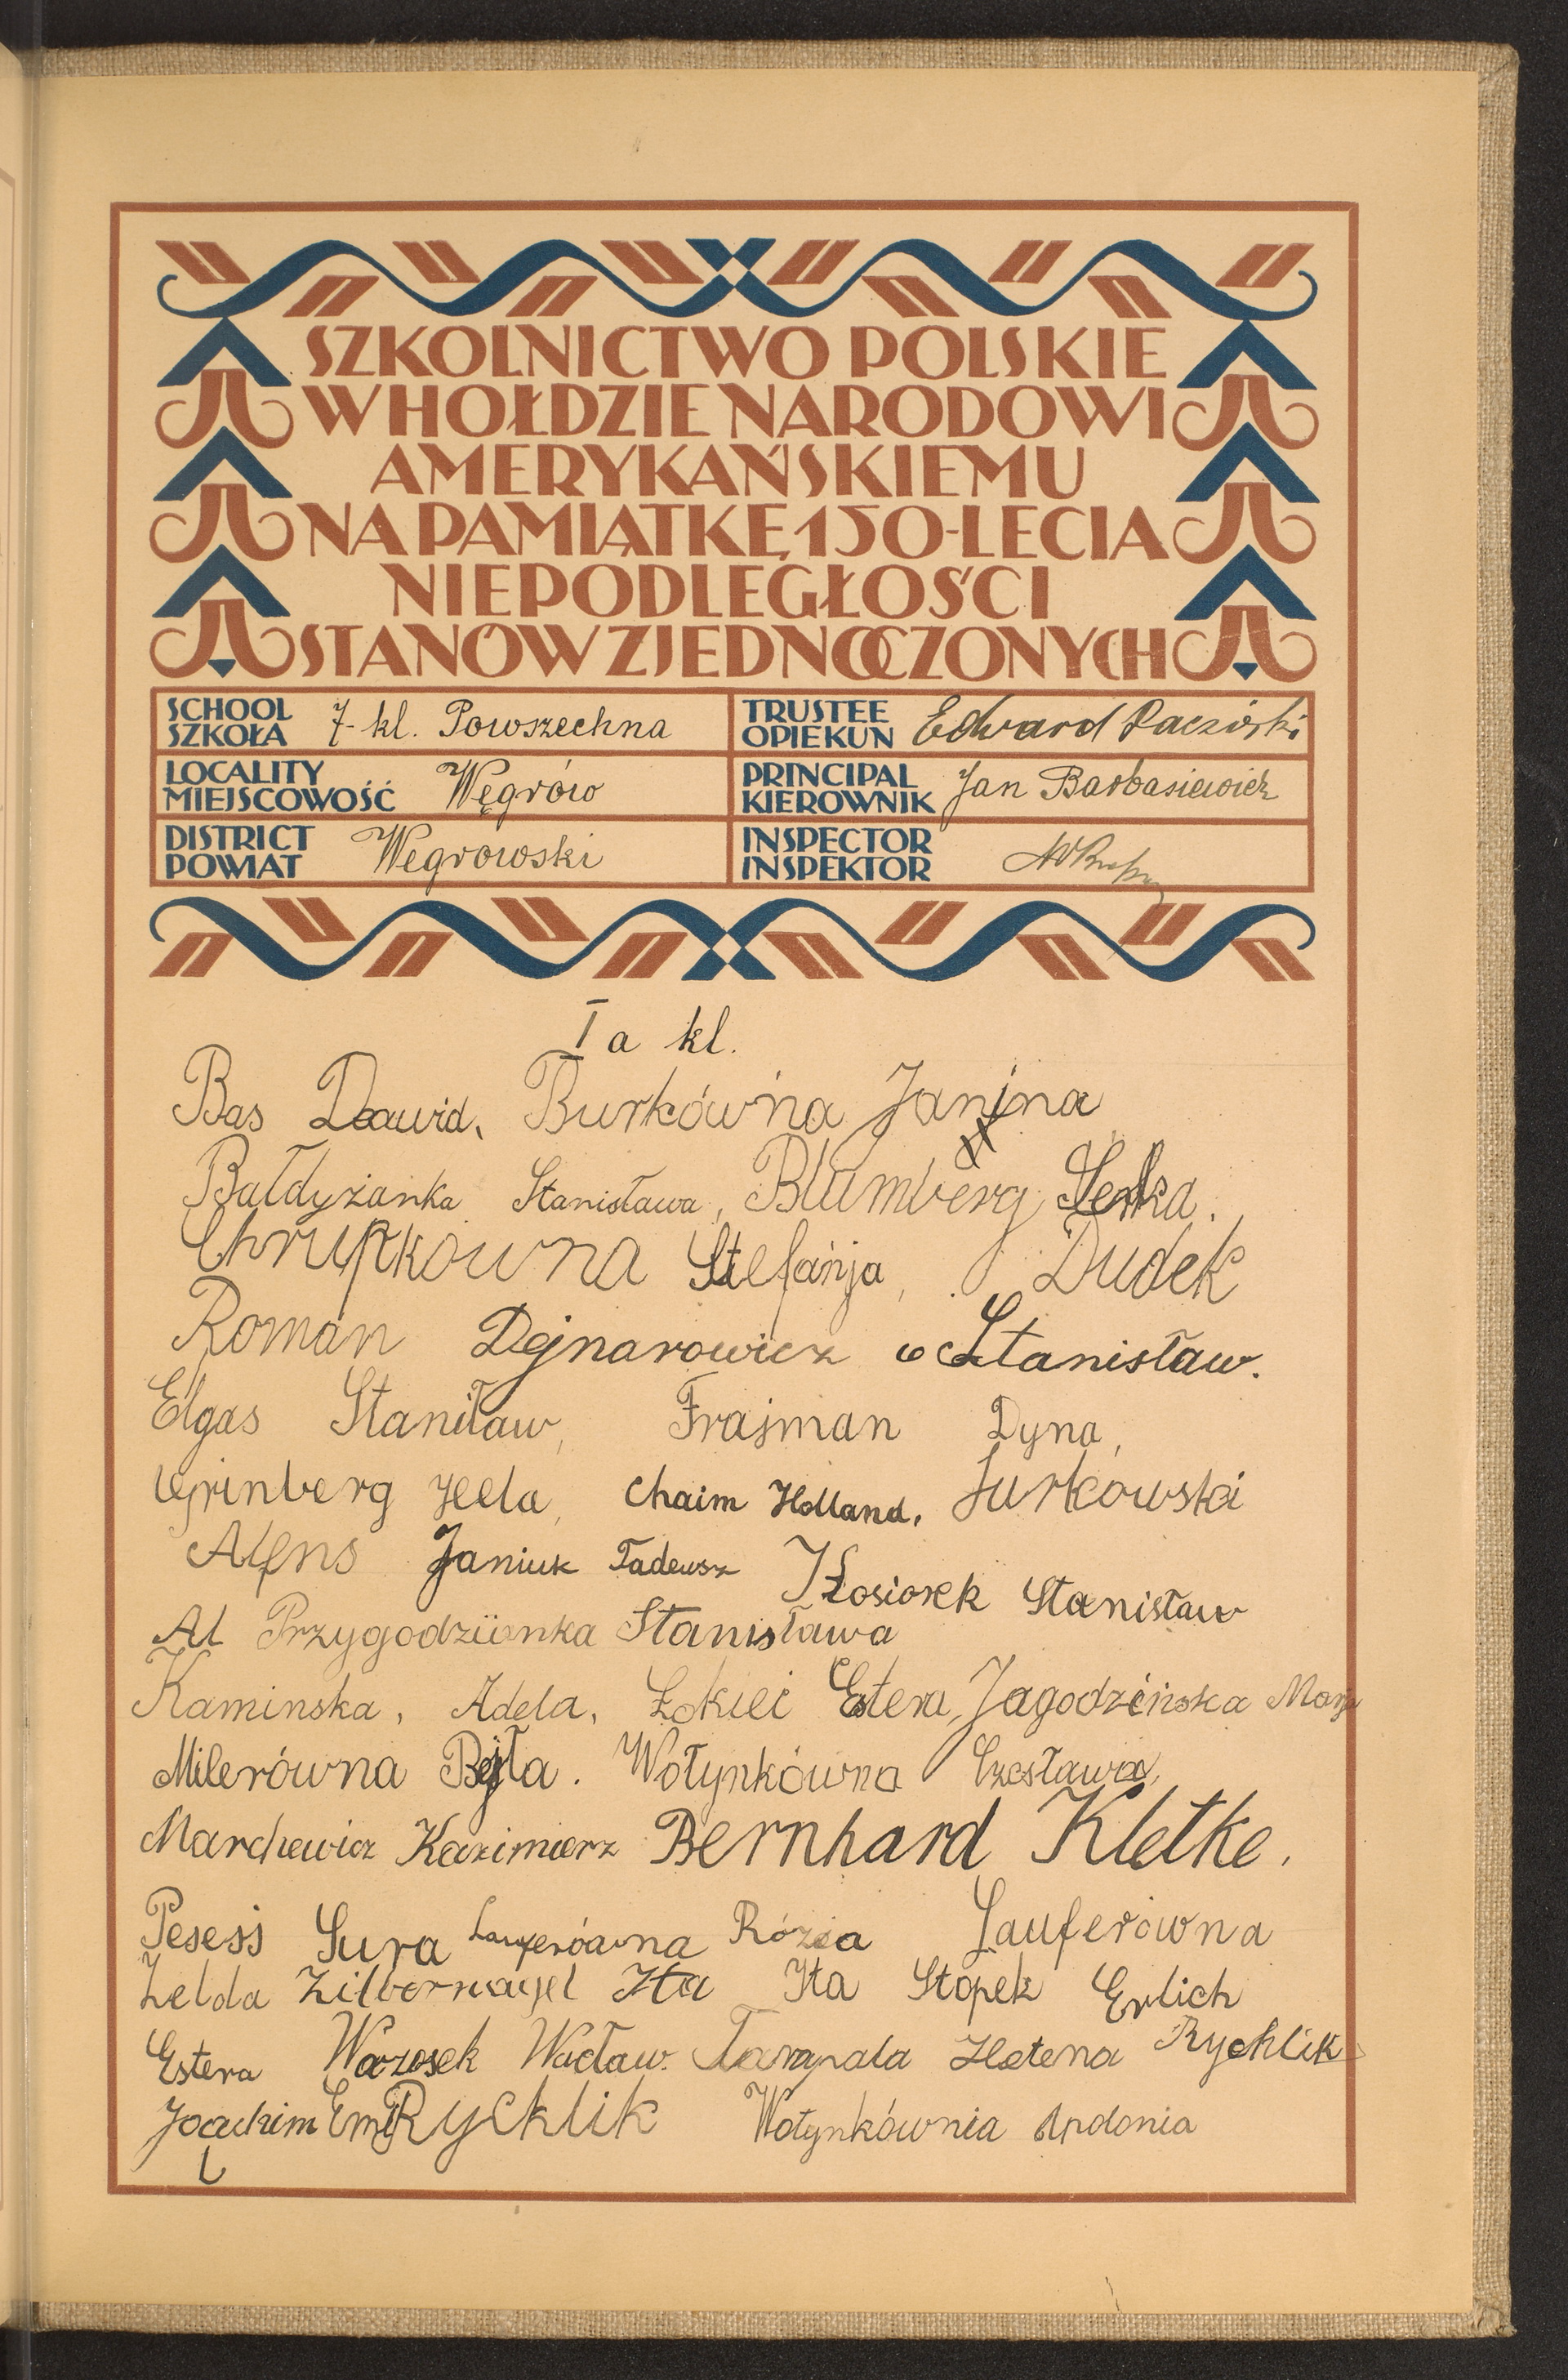 SZKOLNICTWO POLSKIE
W HOŁDZIE NARODOWI
AMERYKAŃSKIEMU
NA PAMIĄTKĘ 150-LECIA
NIEPODLEGŁOŚCI
STANÓW ZJEDNOCZONYCH
SCHOOL
SZKOŁA 7-kl. Powszechna
TRUSTEE
OPIEKUN Edward Raczyński
LOCALITY
MIEJSCOWOŚĆ Węgrów
PRINCIPAL
KIEROWNIK Jan Barbasiewicz
DISTRICT
POWIAT Węgrowski
INSPECTOR
INSPEKTOR
I a kl.
Bas Dawid, Burkówna Janina
Bałdyżanka Stanisława, Blumberg
Chrupkowna Stefanja, Dudek
Roman Dejnarowicz Stanisław.
Elgas Staniław, Frajman Dyna,
Grinberg Hela, Chaim Holland, Jurkowski
Alfns Janiuk Tadeusz Kosiorek Stanisław
Al Przygodzianka Stanisława
Kaminska, Adela, Łokieć Estera, Jagodzińska
Milerówna Bejla. Wołynkówna Czesława,
Marchewicz Kazimierz Bernhard Kletke.
Sura Lauferówna Rózia Lauferówna
Zelda Zilbernagel Ita Ita Stopek Erlich
Estera Wąsosek Wacław. Tarapata Helena Rychlik
Joachim Rycklik Wołynkównia Apolonia